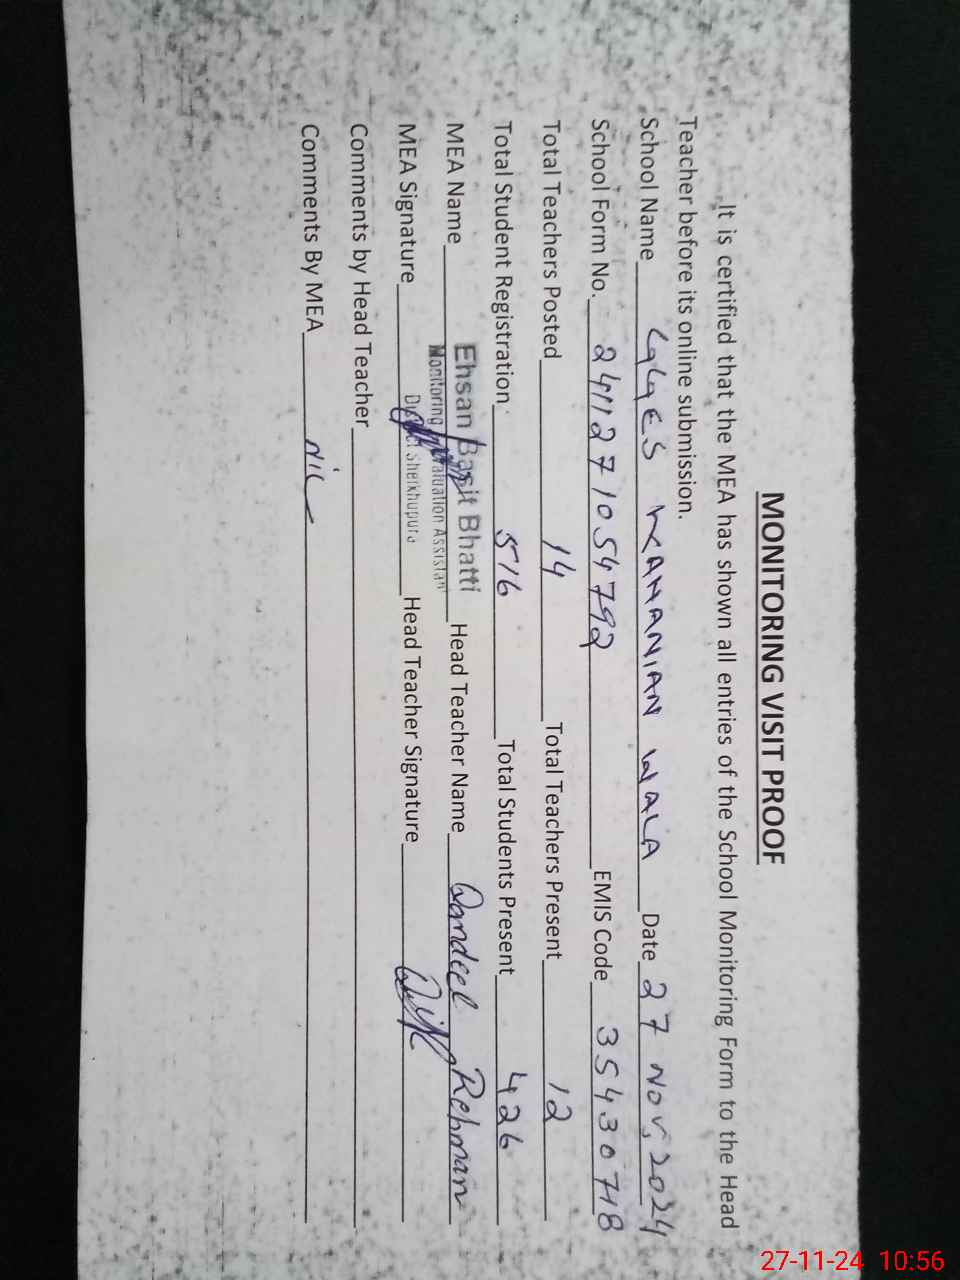 MONITORING VISIT PROOF
It is certified that the MEA has shown all entries of the School Monitoring Form to the Head
Teacher before its online submission.
School Name GGES MANANIAN WALA Date 27 Nov, 2024
School Form No. 2411271054792 EMIS Code 35430718
Total Teachers Posted 14 Total Teachers Present 12
Total Student Registration 516 Total Students Present 426
MEA Name Ehsan Basit Bhatti Head Teacher Name Qandeel Rehman
Monitoring Evaluation Assistant
MEA Signature District Sheikhupura Head Teacher Signature
Comments by Head Teacher
Comments By MEA nil
27-11-24 10:56